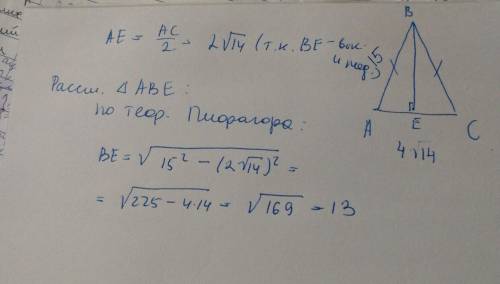 AE = AC/2 = 2√14 (т.к. BE - выс. и мед.)
Рассм. △ABE:
по теор. Пифагора:
BE = √(15² - (2√14)²) =
= √(225 - 4·14) = √169 = 13
B
15
A
E
C
4√14